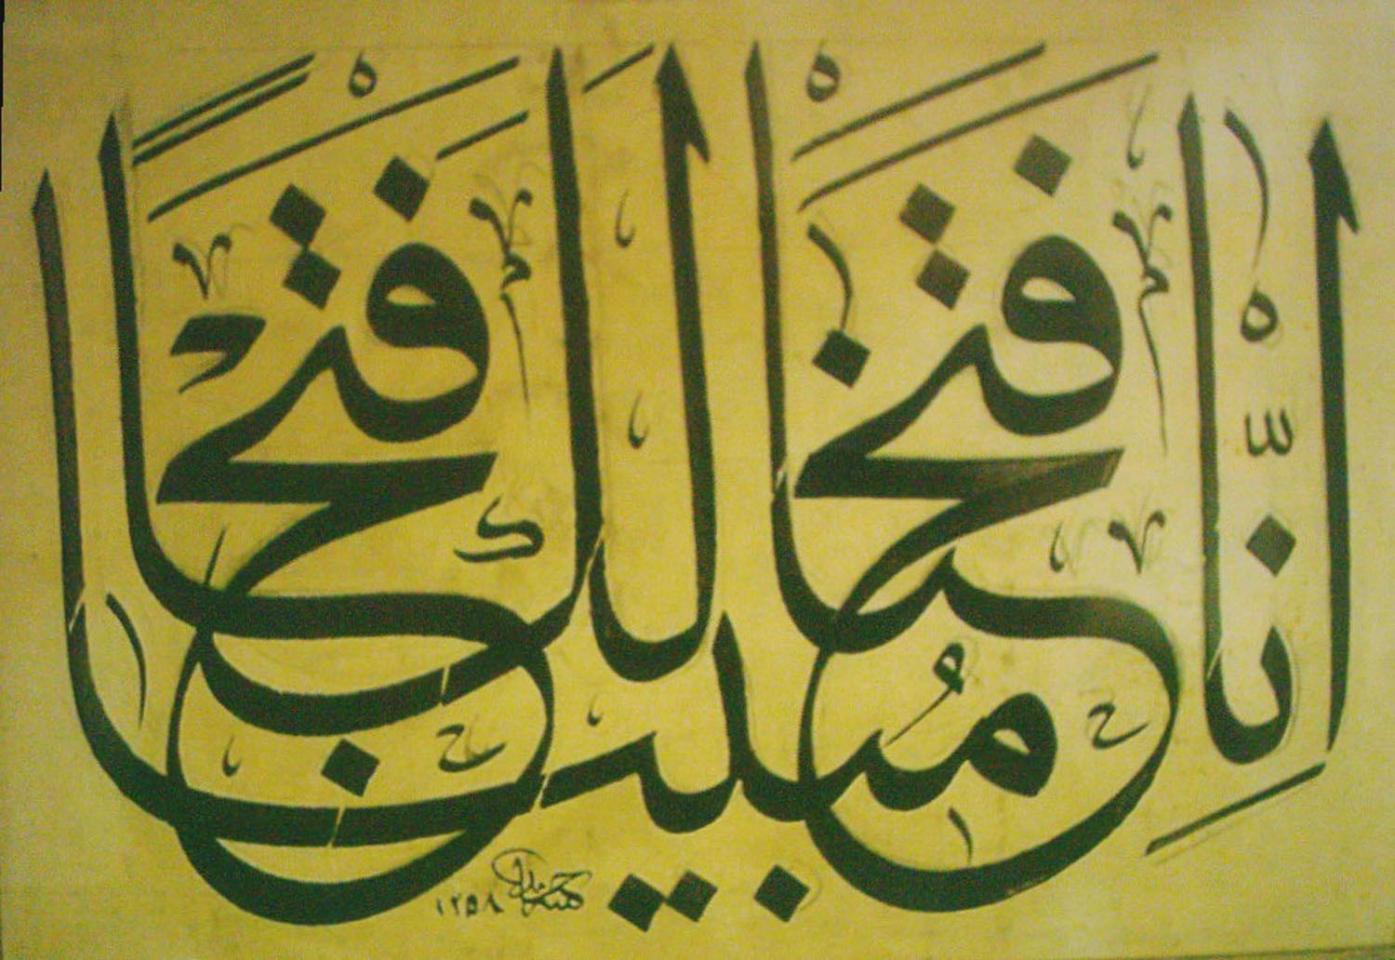 اِنَّا فَتَحْنَا لَكَ فَتْحًا مُبِينًا
١٢٥٨